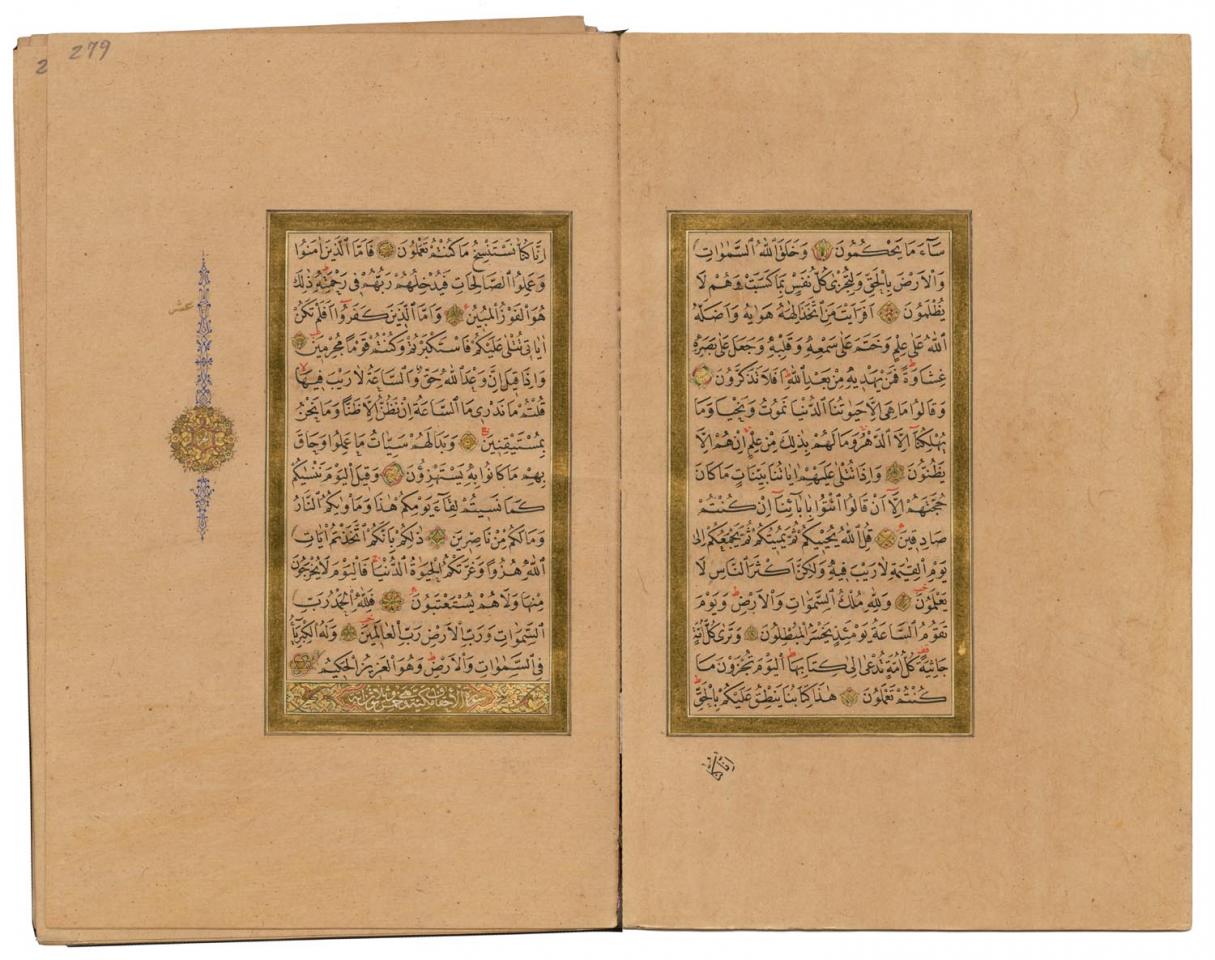 سَآءَ مَا يَحْكُمُونَ وَخَلَقَ اللّٰهُ السَّمٰوَاتِ
وَالْاَرْضَ بِالْحَقِّ وَلِتُجْزٰى كُلُّ نَفْسٍ بِمَا كَسَبَتْ وَهُمْ لَا
يُظْلَمُونَ اَفَرَاَيْتَ مَنِ اتَّخَذَ اِلٰهَهُ هَوٰيهُ وَاَضَلَّهُ
اللّٰهُ عَلٰى عِلْمٍ وَخَتَمَ عَلٰى سَمْعِهِ وَقَلْبِهِ وَجَعَلَ عَلٰى بَصَرِهِ
غِشَاوَةً فَمَنْ يَهْدِيهِ مِنْ بَعْدِ اللّٰهِ اَفَلَا تَذَكَّرُونَ
وَقَالُوا مَا هِىَ اِلَّا حَيٰوتُنَا الدُّنْيَا نَمُوتُ وَنَحْيَا وَمَا
يُهْلِكُنَا اِلَّا الدَّهْرُ وَمَا لَهُمْ بِذٰلِكَ مِنْ عِلْمٍ اِنْ هُمْ اِلَّا
يَظُنُّونَ وَاِذَا تُتْلٰى عَلَيْهِمْ اٰيَاتُنَا بَيِّنَاتٍ مَا كَانَ
حُجَّتَهُمْ اِلَّا اَنْ قَالُوا ائْتُوا بِاٰبَائِنَا اِنْ كُنْتُمْ
صَادِقِينَ قُلِ اللّٰهُ يُحْيِيكُمْ ثُمَّ يُمِيتُكُمْ ثُمَّ يَجْمَعُكُمْ اِلٰى
يَوْمِ الْقِيٰمَةِ لَا رَيْبَ فِيهِ وَلٰكِنَّ اَكْثَرَ النَّاسِ لَا
يَعْلَمُونَ وَلِلّٰهِ مُلْكُ السَّمٰوَاتِ وَالْاَرْضِ وَيَوْمَ
تَقُومُ السَّاعَةُ يَوْمَئِذٍ يَخْسَرُ الْمُبْطِلُونَ وَتَرٰى كُلَّ اُمَّةٍ
جَاثِيَةً كُلُّ اُمَّةٍ تُدْعٰى اِلٰى كِتَابِهَا اَلْيَوْمَ تُجْزَوْنَ مَا
كُنْتُمْ تَعْمَلُونَ هٰذَا كِتَابُنَا يَنْطِقُ عَلَيْكُمْ بِالْحَقِّ
اِنَّا كُنَّا
279
2
اِنَّا كُنَّا نَسْتَنْسِخُ مَا كُنْتُمْ تَعْمَلُونَ فَاَمَّا الَّذِينَ اٰمَنُوا
وَعَمِلُوا الصَّالِحَاتِ فَيُدْخِلُهُمْ رَبُّهُمْ فِى رَحْمَتِهِ ذٰلِكَ
هُوَ الْفَوْزُ الْمُبِينُ وَاَمَّا الَّذِينَ كَفَرُوا اَفَلَمْ تَكُنْ
اٰيَاتِى تُتْلٰى عَلَيْكُمْ فَاسْتَكْبَرْتُمْ وَكُنْتُمْ قَوْمًا مُجْرِمِينَ
وَاِذَا قِيلَ اِنَّ وَعْدَ اللّٰهِ حَقٌّ وَالسَّاعَةُ لَا رَيْبَ فِيهَا
قُلْتُمْ مَا نَدْرِى مَا السَّاعَةُ اِنْ نَظُنُّ اِلَّا ظَنًّا وَمَا نَحْنُ
بِمُسْتَيْقِنِينَ وَبَدَا لَهُمْ سَيِّئَاتُ مَا عَمِلُوا وَحَاقَ
بِهِمْ مَا كَانُوا بِهِ يَسْتَهْزِؤُنَ وَقِيلَ الْيَوْمَ نَنْسٰيكُمْ
كَمَا نَسِيتُمْ لِقَاءَ يَوْمِكُمْ هٰذَا وَمَاْوٰيكُمُ النَّارُ
وَمَا لَكُمْ مِنْ نَاصِرِينَ ذٰلِكُمْ بِاَنَّكُمُ اتَّخَذْتُمْ اٰيَاتِ
اللّٰهِ هُزُوًا وَغَرَّتْكُمُ الْحَيٰوةُ الدُّنْيَا فَالْيَوْمَ لَا يُخْرَجُونَ
مِنْهَا وَلَا هُمْ يُسْتَعْتَبُونَ فَلِلّٰهِ الْحَمْدُ رَبِّ
السَّمٰوَاتِ وَرَبِّ الْاَرْضِ رَبِّ الْعَالَمِينَ وَلَهُ الْكِبْرِيَاءُ
فِى السَّمٰوَاتِ وَالْاَرْضِ وَهُوَ الْعَزِيزُ الْحَكِيمُ
سورة الاحقاف مكية وهى خمس وثلاثون اية
عشر